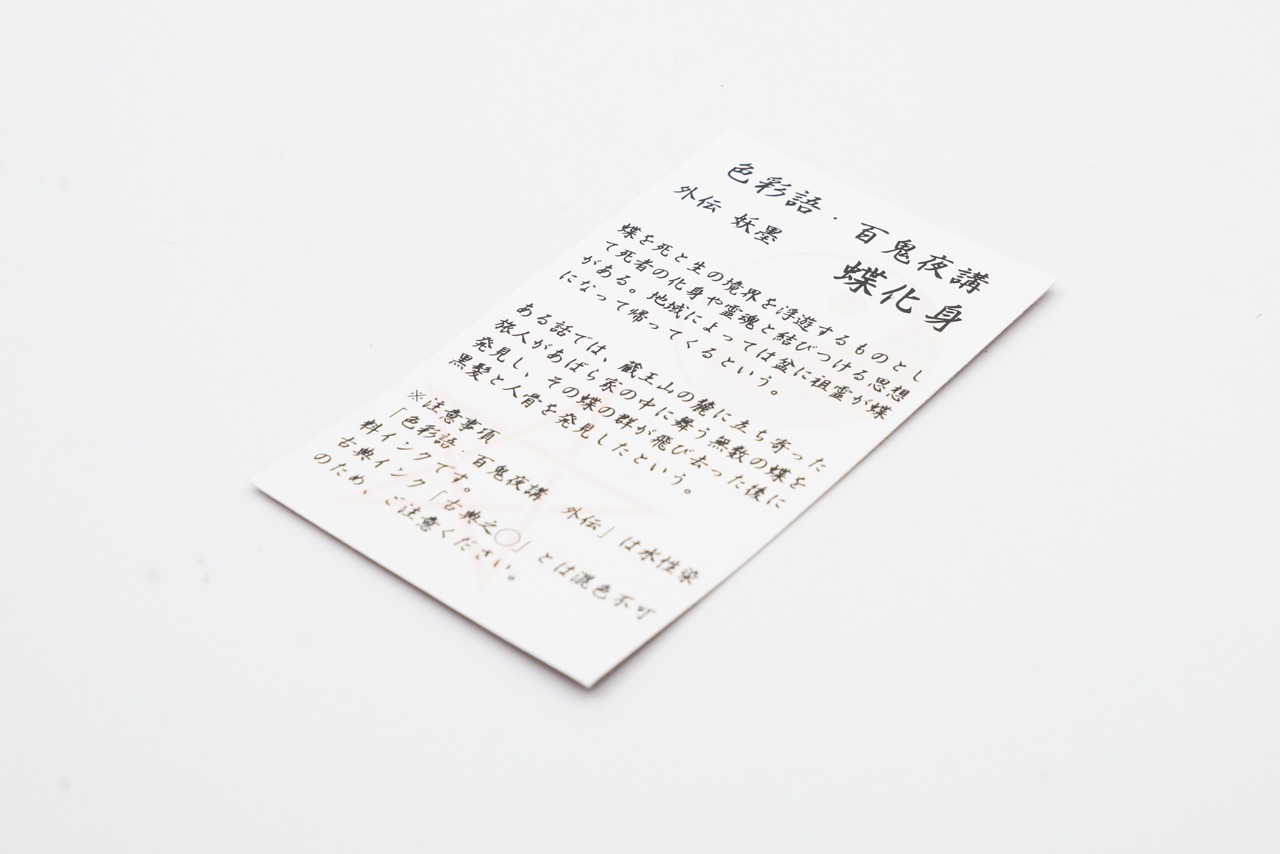 色彩語・百鬼夜講
外伝 妖墨
蝶化身
蝶を死と生の境界を浮遊するものとし
て死者の化身や霊魂と結びつける思想
がある。地域によっては盆に祖霊が蝶
になって帰ってくるという。
ある話では、蔵王山の麓に立ち寄った
旅人があばら家の中に舞う無数の蝶を
発見し、その蝶の群が飛び去った後に
黒髪と人骨を発見したという。
※注意事項
「色彩語・百鬼夜講 外伝」は水性染
料インクです。
古典インク「古典之〇」とは混色不可
のため、ご注意ください。